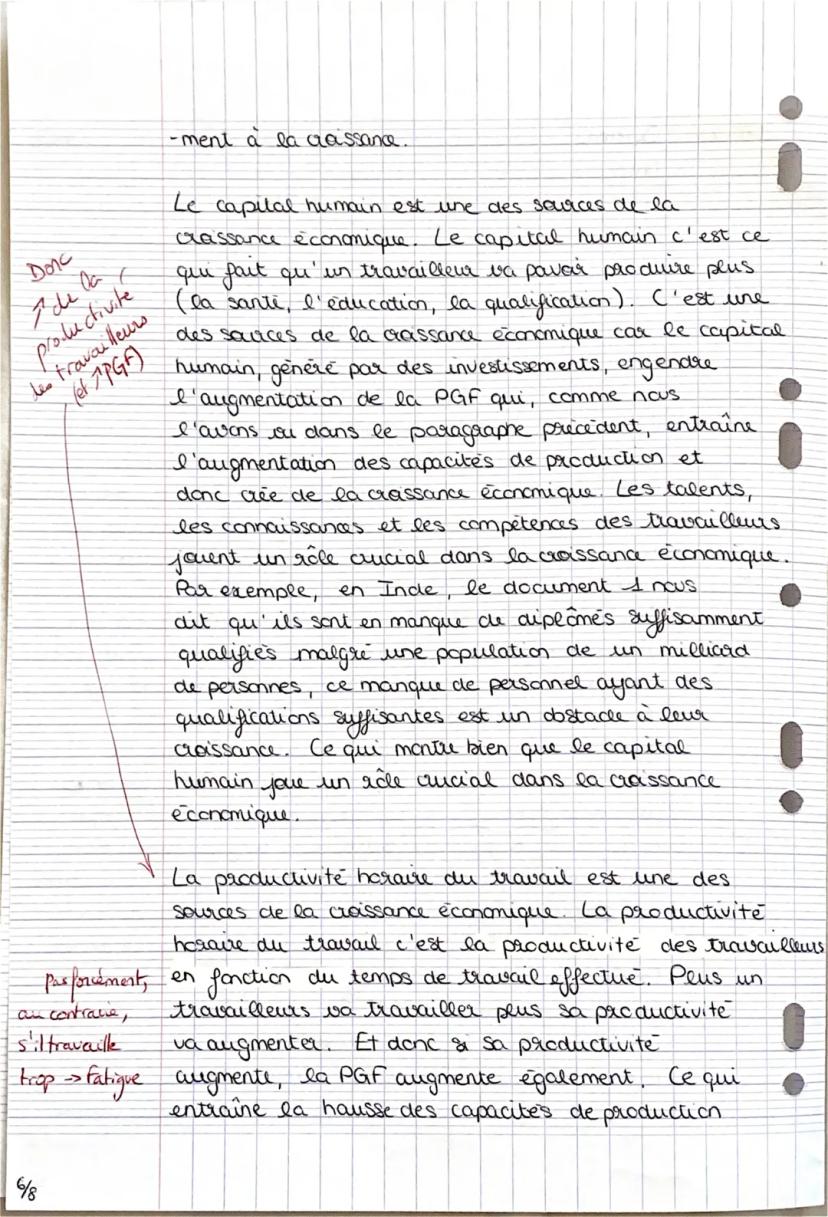 -ment à la croissance.
Le capital humain est une des sources de la
croissance économique. Le capital humain c'est ce
qui fait qu'un travailleur va pouvoir produire plus
(la santé, l'éducation, la qualification). C'est une
des sources de la croissance économique car le capital
humain, généré par des investissements, engendre
l'augmentation de la PGF qui, comme nous
l'avons vu dans le paragraphe précédent, entraîne
l'augmentation des capacités de production et
donc crée de la croissance économique. Les talents,
les connaissances et les compétences des travailleurs
jouent un rôle crucial dans la croissance économique.
Par exemple, en Inde, le document 1 nous
dit qu'ils sont en manque de diplômés suffisamment
qualifiés malgré une population de un milliard
de personnes, ce manque de personnel ayant des
qualifications suffisantes est un obstacle à leur
croissance. Ce qui montre bien que le capital
humain joue un rôle crucial dans la croissance
économique.
Donc
↑ de la
productivité
des travailleurs
(et ↑PGF)
La productivité horaire du travail est une des
sources de la croissance économique. La productivité
horaire du travail c'est la productivité des travailleurs
en fonction du temps de travail effectué. Plus un
travailleurs va travailler plus sa productivité
va augmenter. Et donc si sa productivité
augmente, la PGF augmente également. Ce qui
entraîne la hausse des capacités de production
pas forcément,
au contraire,
s'il travaille
trop → fatigue
6/8